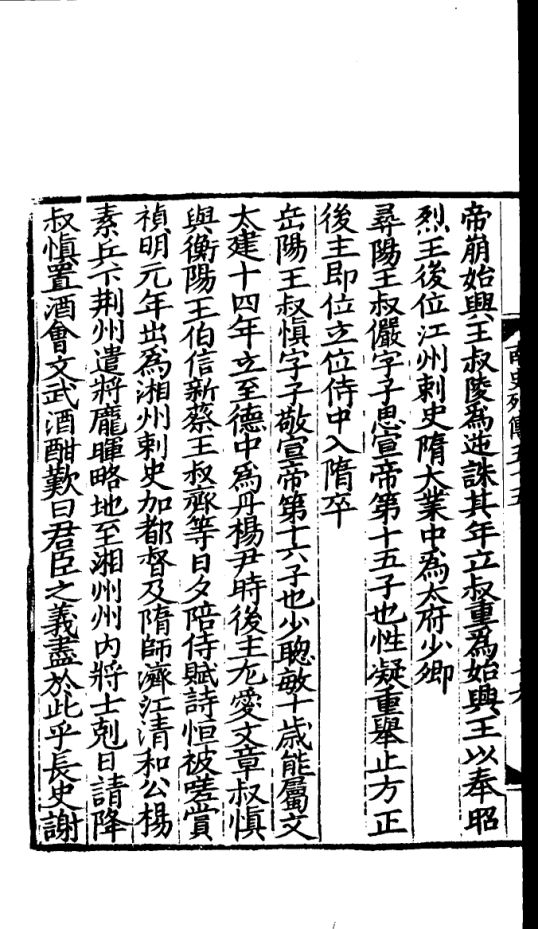 帝崩始興王叔陵為逆誅其年立叔重為始興王以奉昭
烈王後位江州刺史隋大業中為太府少卿
尋陽王叔儼字子思宣帝第十五子也性凝重舉止方正
後主即位立位侍中入隋卒
岳陽王叔慎字子敬宣帝第十六子也少聦敏十歳能屬文
太建十四年立至德中為丹楊尹時後主尤愛文章叔慎
與衡陽王伯信新蔡王叔齊等日夕陪侍賦詩恒被嗟賞
禎明元年出為湘州刺史加都督及隋師濟江清和公楊
素兵下荆州遣將龐暉略地至湘州州内將士剋日請降
叔慎置酒會文武酒酣歎曰君臣之義盡於此乎長史謝